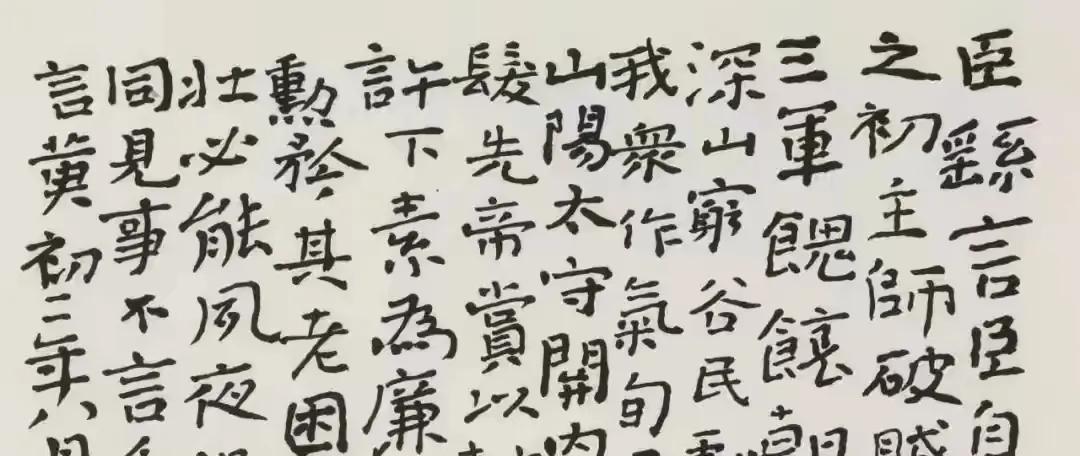 臣繇言臣自
之初主師破賊
三軍餽饟朝
深山窮谷民
我衆作氣旬
山陽太守開內
髮先帝賞以
許下素為廉
勳矜其老困
壯必能夙夜
同見事不言
言黃初二年八月